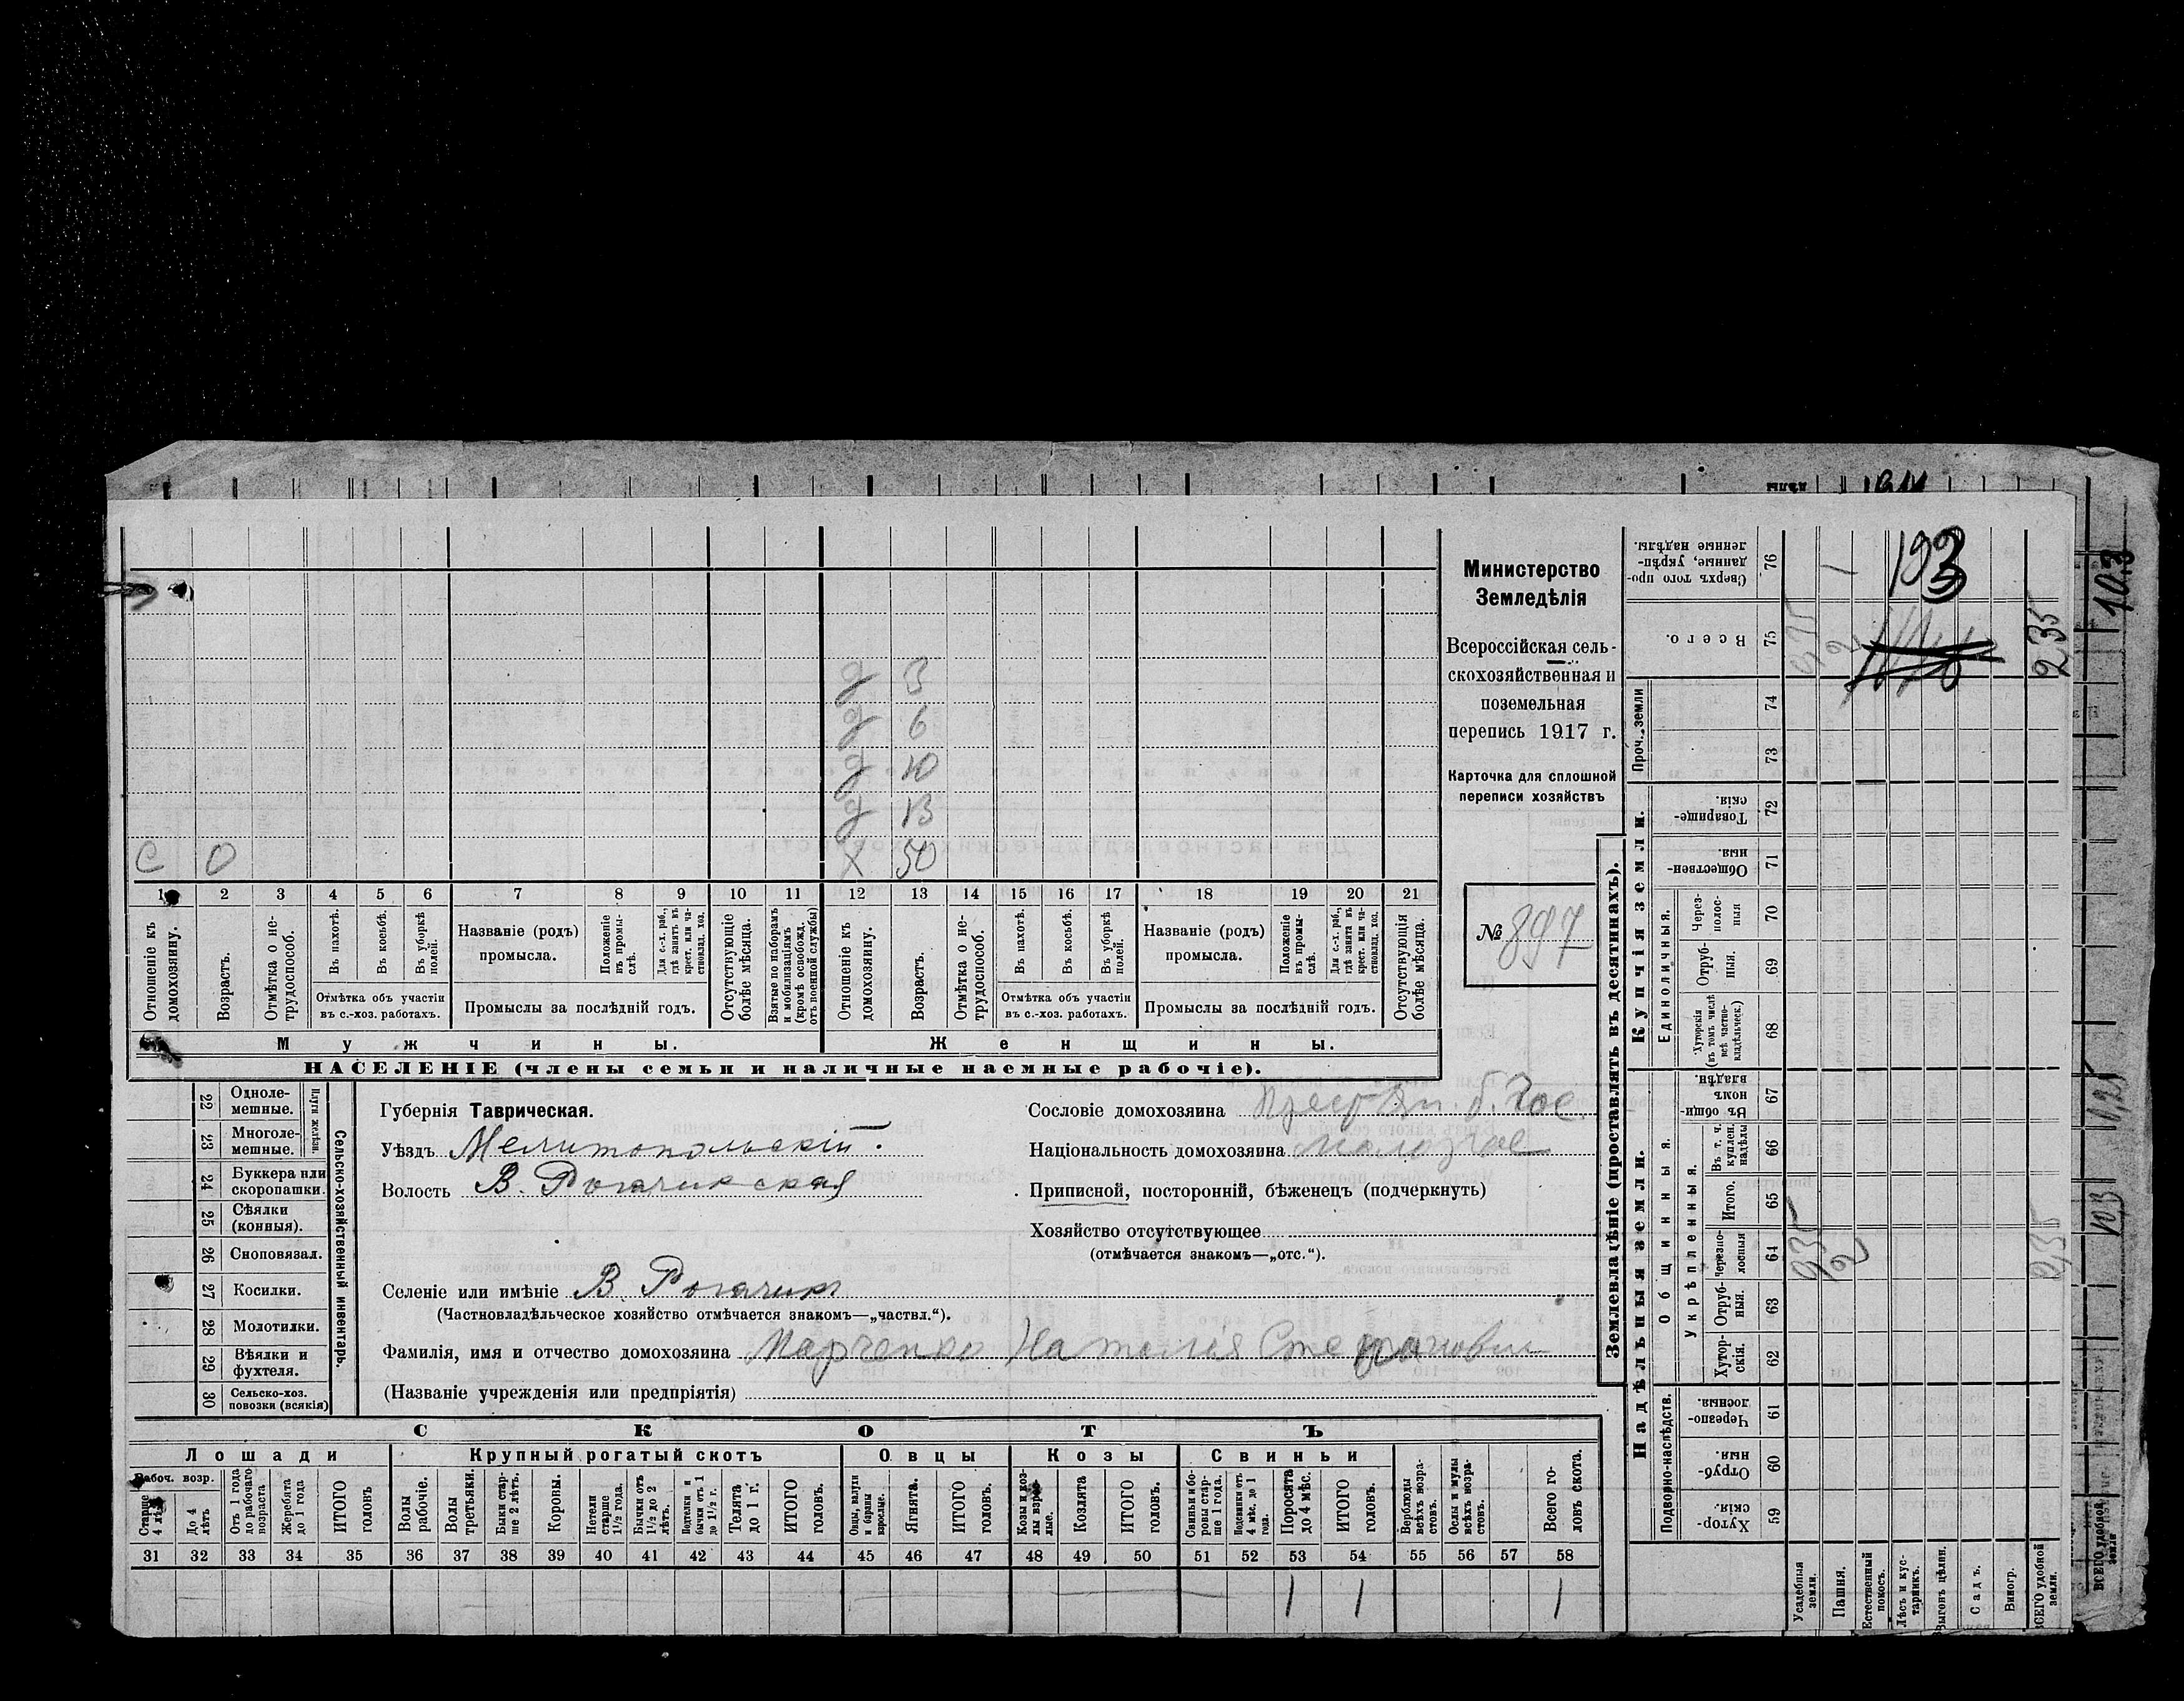 Министерство
Земледѣлія
Всероссійская сель-
скохозяйственная и
поземельная
перепись 1917 г.
Карточка для сплошной
переписи хозяйствъ
№ 897
д 3
д 6
д 10
д 13
С 0 х 50
1 2 3 4 5 6 7 8 9 10 11 12 13 14 15 16 17 18 19 20 21
Отношеніе къ домохозяину.
Возрастъ.
Отмѣтка о не-трудоспособ.
Въ пахотѣ.
Въ косьбѣ.
Въ уборкѣ полей.
Отмѣтка объ участіи
въ с.-хоз. работахъ.
Названіе (родъ)
промысла.
Положеніе въ промы-слѣ.
Для с.-х. раб., гдѣ занятъ въ крест. или ча-стновлад. хоз.
Промыслы за послѣдній годъ.
Отсутствующіе болѣе мѣсяца.
Взятые по наборамъ и мобилизаціямъ (кромѣ освобожд. отъ военной службы)
Отношеніе къ домохозяину.
Возрастъ.
Отмѣтка о не-трудоспособ.
Въ пахотѣ.
Въ косьбѣ.
Въ уборкѣ полей.
Отмѣтка объ участіи
въ с.-хоз. работахъ.
Названіе (родъ)
промысла.
Положеніе въ промы-слѣ.
Для с.-х. раб., гдѣ занята въ крест. или ча-стновлад. хоз.
Промыслы за послѣдній годъ.
Отсутствующія болѣе мѣсяца.
Мужчины. Женщины.
НАСЕЛЕНІЕ (члены семьи и наличные наемные рабочіе).
22 Одноле-мешные.
23 Многоле-мешные.
Плуги желѣзн.
24 Буккера или скоропашки.
25 Сѣялки (конныя).
26 Сноповязал.
27 Косилки.
28 Молотилки.
29 Вѣялки и фухтеля.
30 Сельско-хоз. повозки (всякія)
Сельско-хозяйственный инвентарь.
Губернія Таврическая.
Уѣздъ Мелитопольскій.
Волость В. Рогачикская
Селеніе или имѣніе В. Рогачик
(Частновладѣльческое хозяйство отмѣчается знакомъ—„частвл.“).
Фамилія, имя и отчество домохозяина Марченко Наталія Степановна
(Названіе учрежденія или предпріятія)
Сословіе домохозяина
Національность домохозяина
Приписной, посторонній, бѣженецъ (подчеркнуть)
Хозяйство отсутствующее
(отмѣчается знакомъ—„отс.“).
СКОТЪ
Лошади Крупный рогатый скотъ Овцы Козы Свиньи
Рабоч. возр.
Старше 4 лѣтъ
До 4 лѣтъ
Отъ 1 года до рабочаго возраста
Жеребята до 1 года
ИТОГО головъ
Волы рабочіе.
Волы третьяки.
Быки стар-ше 2 лѣтъ.
Коровы.
Нетели старше 1½ года.
Бычки отъ 1½ до 2 лѣтъ.
Подтелки и бычки отъ 1 до 1½ г.
Телята до 1 г.
ИТОГО головъ.
Овцы, валухи и бараны взрослые.
Ягнята.
ИТОГО головъ.
Козы и коз-лы взрос-лые.
Козлята
ИТОГО головъ.
Свиньи и бо-ровы стар-ше 1 года.
Подсвинки отъ 4 мѣс. до 1 года.
Поросята до 4 мѣс.
ИТОГО головъ.
Верблюды всѣхъ возра-стовъ.
Ослы и мулы всѣхъ возра-стовъ.
Всего го-ловъ скота.
31 32 33 34 35 36 37 38 39 40 41 42 43 44 45 46 47 48 49 50 51 52 53 54 55 56 57 58
1 1 1
Землевладѣніе (проставлять въ десятинахъ).
Надѣльныя земли. Купчія земли. Проч. земли
Подворно-наслѣдств.
Общинныя.
Укрѣпленныя.
Единоличныя.
Хутор-скія. 59
Отруб-ныя. 60
Черезпо-лосныя. 61
Хутор-скія. 62
Отруб-ныя. 63
Черезпо-лосныя 64
Итого. 65
Въ т. ч. куплен. надѣлы 66
Въ общин-номъ владѣн. 67
Хуторскія (въ томъ числѣ всѣ частно-владѣльческ.) 68
Отруб-ныя. 69
Через-полос-ныя 70
Обществен-ныя 71
Товарище-скія. 72
73
74
Всего. 75
Сверхъ того про-данные, укрѣп-ленные надѣлы. 76
Усадебныя земли.
Пашня.
Естественный покосъ.
Лѣсъ и кус-тарникъ.
Выгонъ цѣлин.
Садъ.
Виногр.
ВСЕГО удобной земли.
193
2,35
10,3
ВСЕГО удобной земли